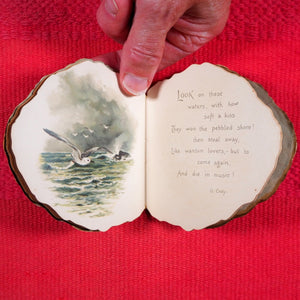 Look on these
waters, with how
soft a kiss
They woo the pebbled shore!
then steal away,
Like wanton lovers,—but to
come again,
And die in music!